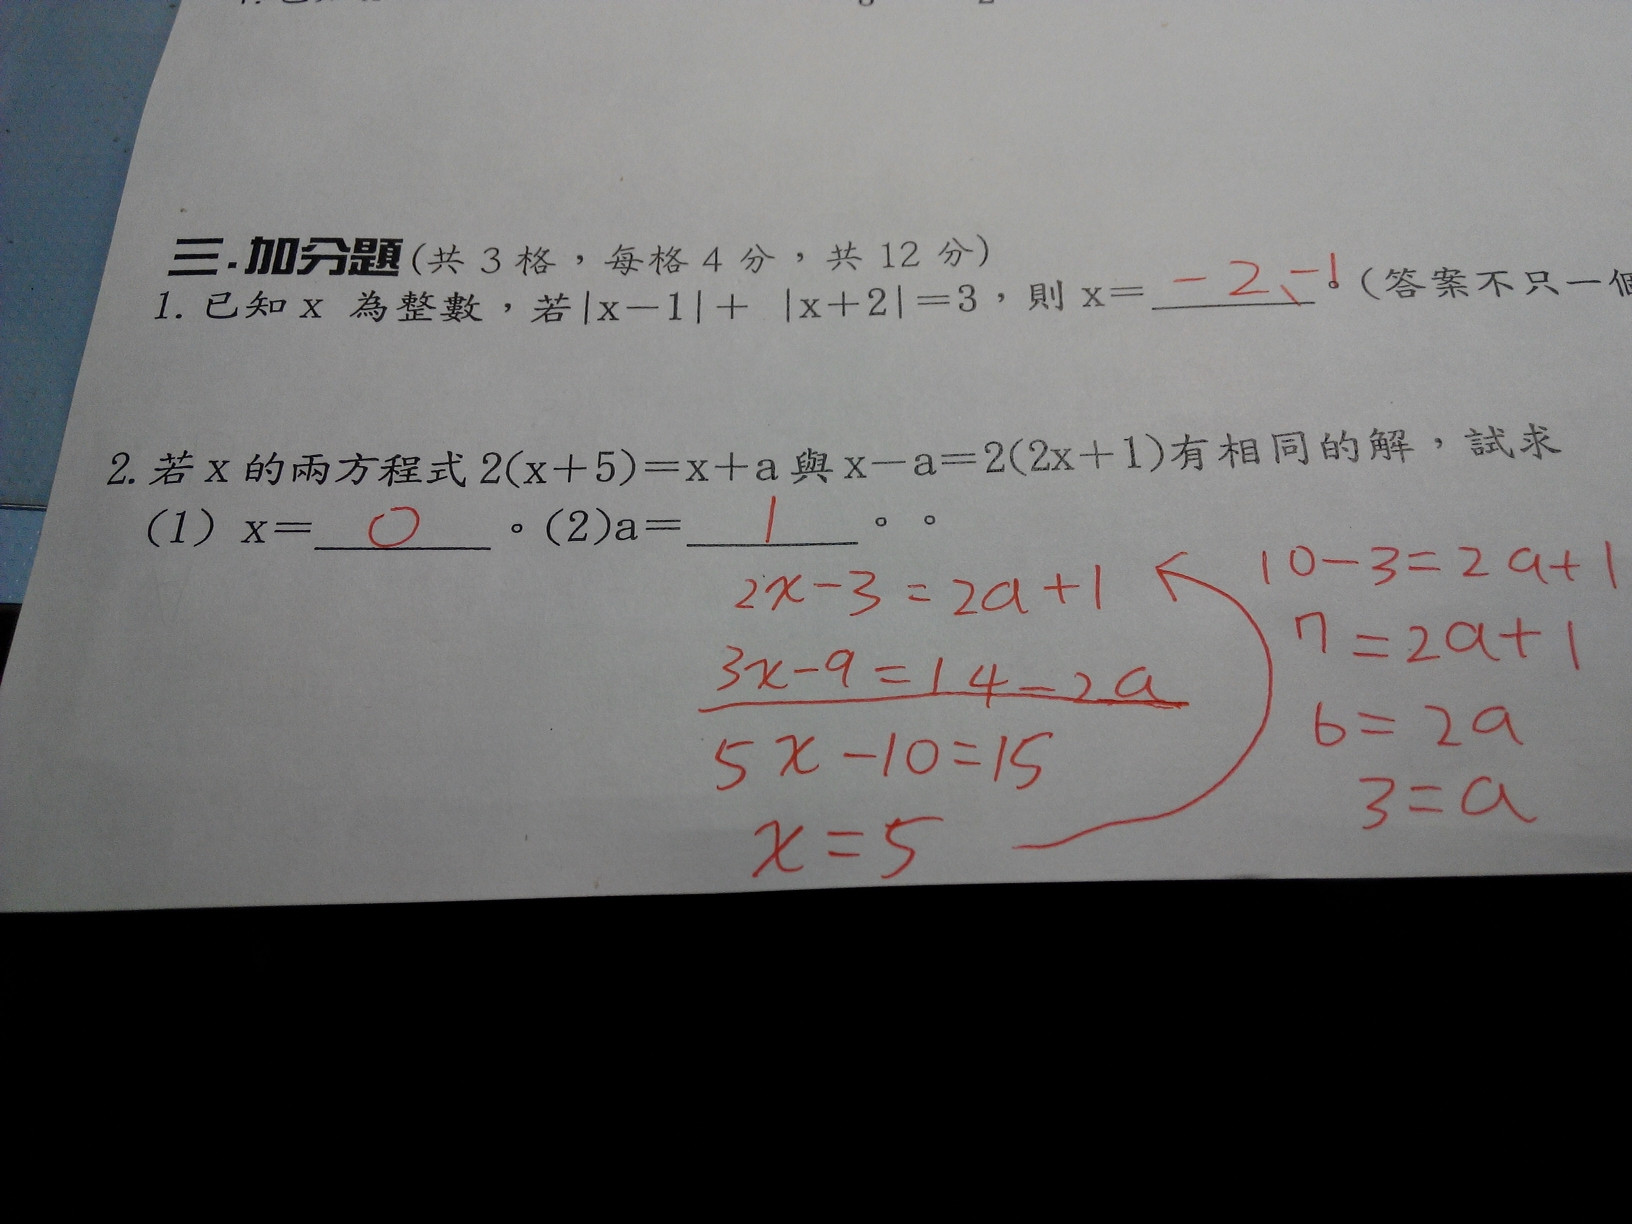 三.加分題(共3格，每格4分，共12分)
1.已知x 為整數，若|x－1|＋ |x＋2|＝3，則x＝ -2、-1。(答案不只一個
2.若x的兩方程式2(x＋5)＝x＋a與x－a＝2(2x＋1)有相同的解，試求
(1) x＝ 0 。(2)a＝ 1 。。
2x-3=2a+1
3x-9=14-2a
5x-10=15
x=5
10-3=2a+1
7=2a+1
6=2a
3=a